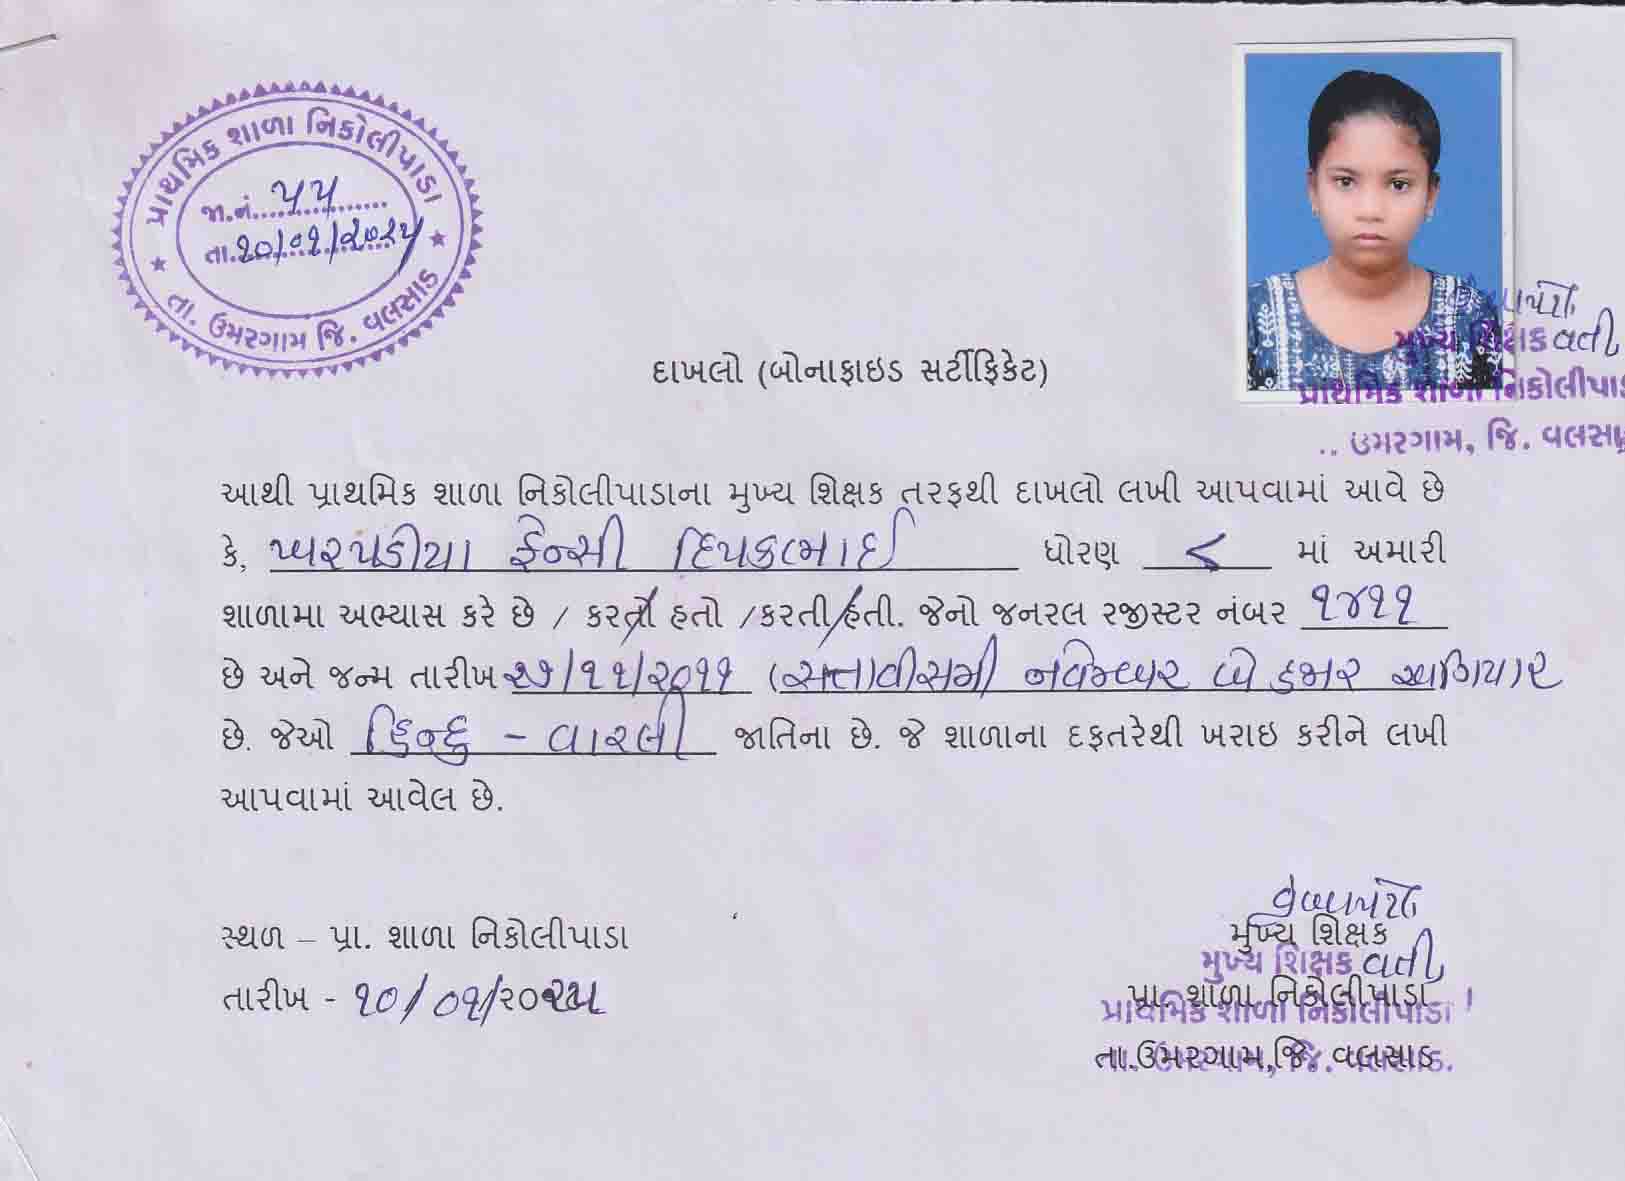 પ્રાથમિક શાળા નિકોલીપાડા
જા.નં. ૫૫
તા. ૧૦/૦૧/૨૦૨૫
તા. ઉમરગામ જિ. વલસાડ
મુખ્ય શિક્ષક વતી
પ્રાથમિક શાળા નિકોલીપાડ
.. ઉમરગામ, જિ. વલસા
દાખલો (બોનાફાઇડ સર્ટીફિકેટ)
આથી પ્રાથમિક શાળા નિકોલીપાડાના મુખ્ય શિક્ષક તરફથી દાખલો લખી આપવામાં આવે છે
કે, ખરપડીયા ફેન્સી દિપકભાઈ ધોરણ ૮ માં અમારી
શાળામા અભ્યાસ કરે છે / કરતો હતો /કરતી હતી. જેનો જનરલ રજીસ્ટર નંબર ૧૪૧૧
છે અને જન્મ તારીખ ૨૭/૧૧/૨૦૧૧ (સત્તાવીસમી નવેમ્બર બે હજાર અગિયાર
છે. જેઓ હિન્દુ - વારલી જાતિના છે. જે શાળાના દફતરેથી ખરાઇ કરીને લખી
આપવામાં આવેલ છે.
સ્થળ – પ્રા. શાળા નિકોલીપાડા
તારીખ - ૧૦/૦૧/૨૦૨૫
મુખ્ય શિક્ષક
મુખ્ય શિક્ષક વતી
પ્રા. શાળા નિકોલીપાડા
પ્રાથમિક શાળા નિકોલીપાડા
તા.ઉમરગામ,જિ. વલસાડ
તા. ઉમરગામ, જિ. વલસાડ.